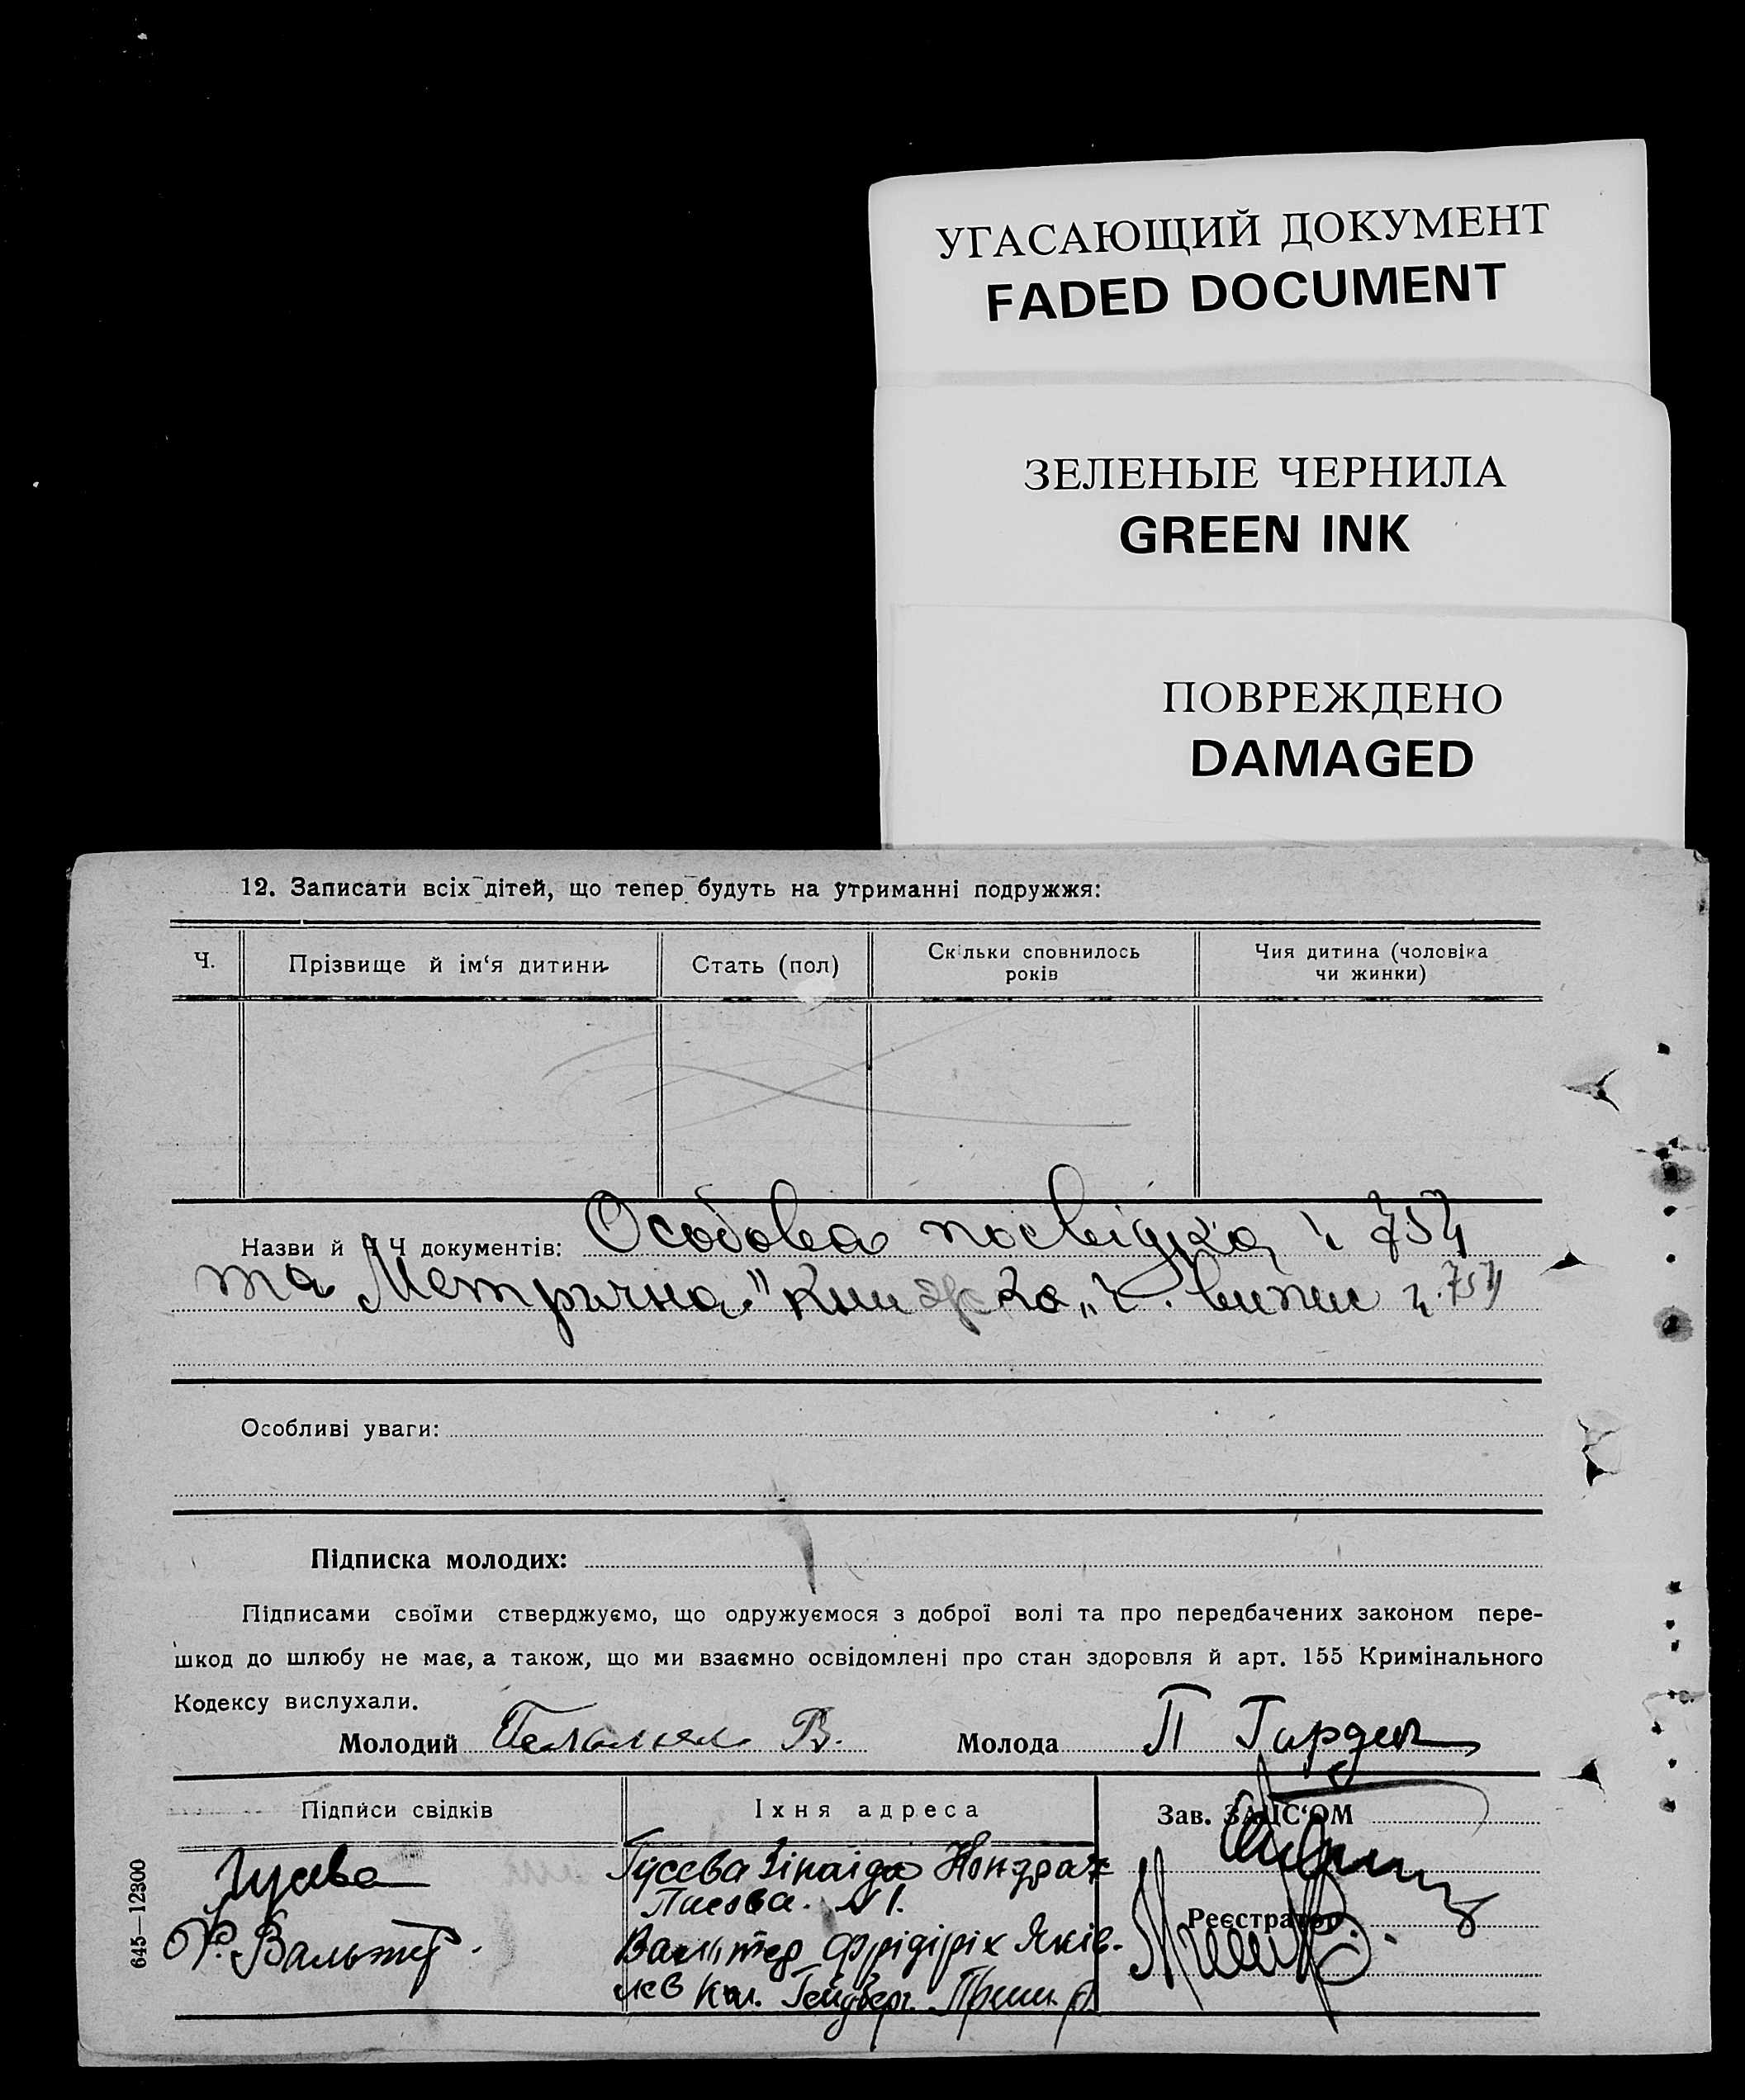 УГАСАЮЩИЙ ДОКУМЕНТ
FADED DOCUMENT
ЗЕЛЕНЫЕ ЧЕРНИЛА
GREEN INK
ПОВРЕЖДЕНО
DAMAGED
12. Записати всіх дітей, що тепер будуть на утриманні подружжя:
Ч.
Прізвище й ім‘я дитини
Стать (пол)
Скільки сповнилось
років
Чия дитина (чоловіка
чи жинки)
Назви й Ч Ч документів: Особова посвідка ч 754
та Метрична
Особливі уваги:
Підписка молодих:
Підписами своїми стверджуємо, що одружуємося з доброї волі та про передбачених законом пере-
шкод до шлюбу не має, а також, що ми взаємно освідомлені про стан здоровля й арт. 155 Кримінального
Кодексу вислухали.
Молодий В. Молода П
Підписи свідків
Їхня адреса
Зав. ЗАПС‘ОМ
Гусева
Гусева Зінаіда
№ 1.
Реєстратор
Вальтер
Вальтер Фрідіріх Яків-
лєв
645—12300